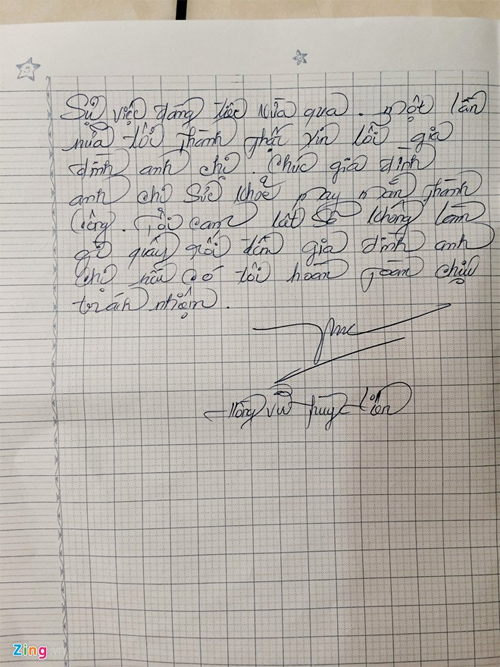 Sự việc đáng tiếc vừa qua. một lần
nữa tôi thành thật xin lỗi gia
đình anh chị. Chúc gia đình
anh chị sức khoẻ may mắn thành
công. Tôi cam kết sẽ không làm
gì quấy rối đến gia đình anh
chị nếu có tôi hoàn toàn chịu
trách nhiệm.
Zing